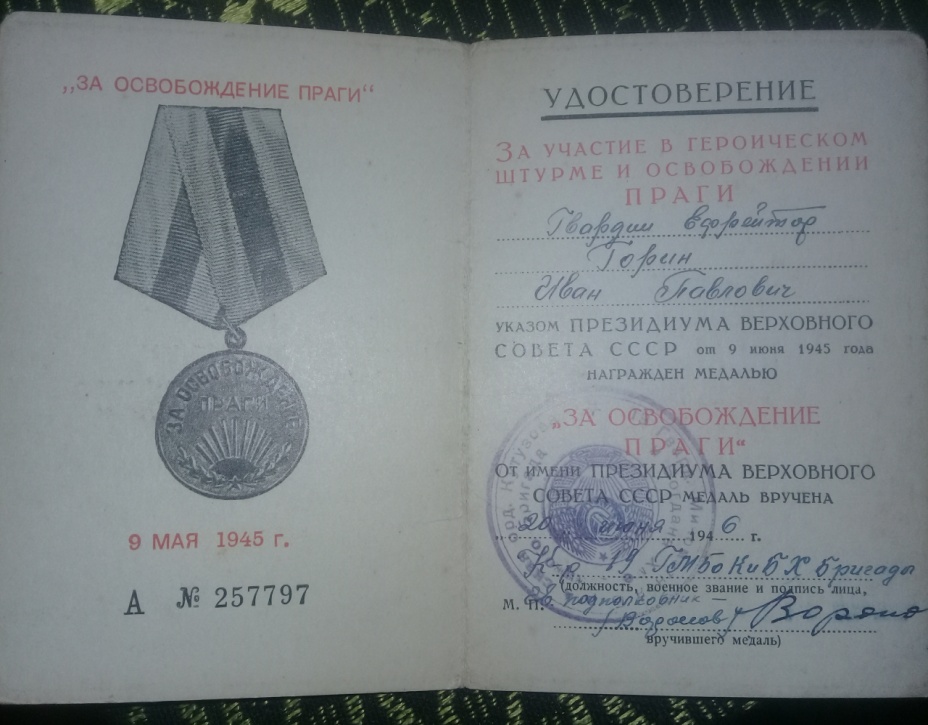 „ЗА ОСВОБОЖДЕНИЕ ПРАГИ“
ЗА ОСВОБОЖДЕНИЕ
ПРАГИ
9 МАЯ 1945 г.
А № 257797
УДОСТОВЕРЕНИЕ
ЗА УЧАСТИЕ В ГЕРОИЧЕСКОМ
ШТУРМЕ И ОСВОБОЖДЕНИИ
ПРАГИ
Гвардии ефрейтор
Горин
Иван Павлович
УКАЗОМ ПРЕЗИДИУМА ВЕРХОВНОГО
СОВЕТА СССР от 9 июня 1945 года
НАГРАЖДЕН МЕДАЛЬЮ
„ЗА ОСВОБОЖДЕНИЕ
ПРАГИ“
ОТ ИМЕНИ ПРЕЗИДИУМА ВЕРХОВНОГО
СОВЕТА СССР МЕДАЛЬ ВРУЧЕНА
„20“ июня 1946 г.
К-р 19 ГМБОКиБХ Бригады
(должность, военное звание и подпись лица,
М. П. подполковник
вручившего медаль)